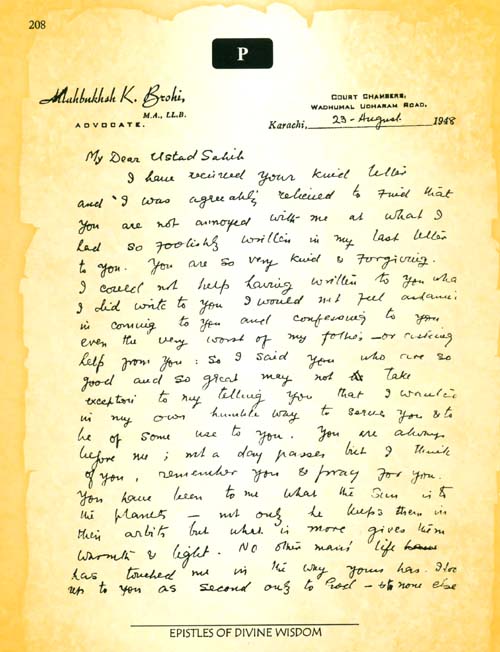 208
P
Allahbukhsh K. Brohi,
M.A., LL.B.
ADVOCATE.
COURT CHAMBERS,
WADHUMAL UDHARAM ROAD,
Karachi, 23-August 1948
My Dear Ustad Sahib
I have received your kind letter
and I was agreeably relieved to find that
you are not annoyed with me at what I
had so foolishly written in my last letter
to you. You are so very kind & forgiving.
I could not help having written to you wha
I did write to you I would not feel
in coming to you and confessing to you
even the very worst of my follies – or asking
help from you: so I said you who are so
good and so great may not take
exception to my telling you that I
in my own humble way to serve you & to
be of some use to you. You are always
before me; not a day passes but I think
of you, remember you & pray for you.
You have been to me what the Sun is to
the planets – not only he keeps them in
their orbits but what is more gives them
warmth & light. No other man's life
has touched me in the way yours has. I
up to you as second only to God – to none else
EPISTLES OF DIVINE WISDOM